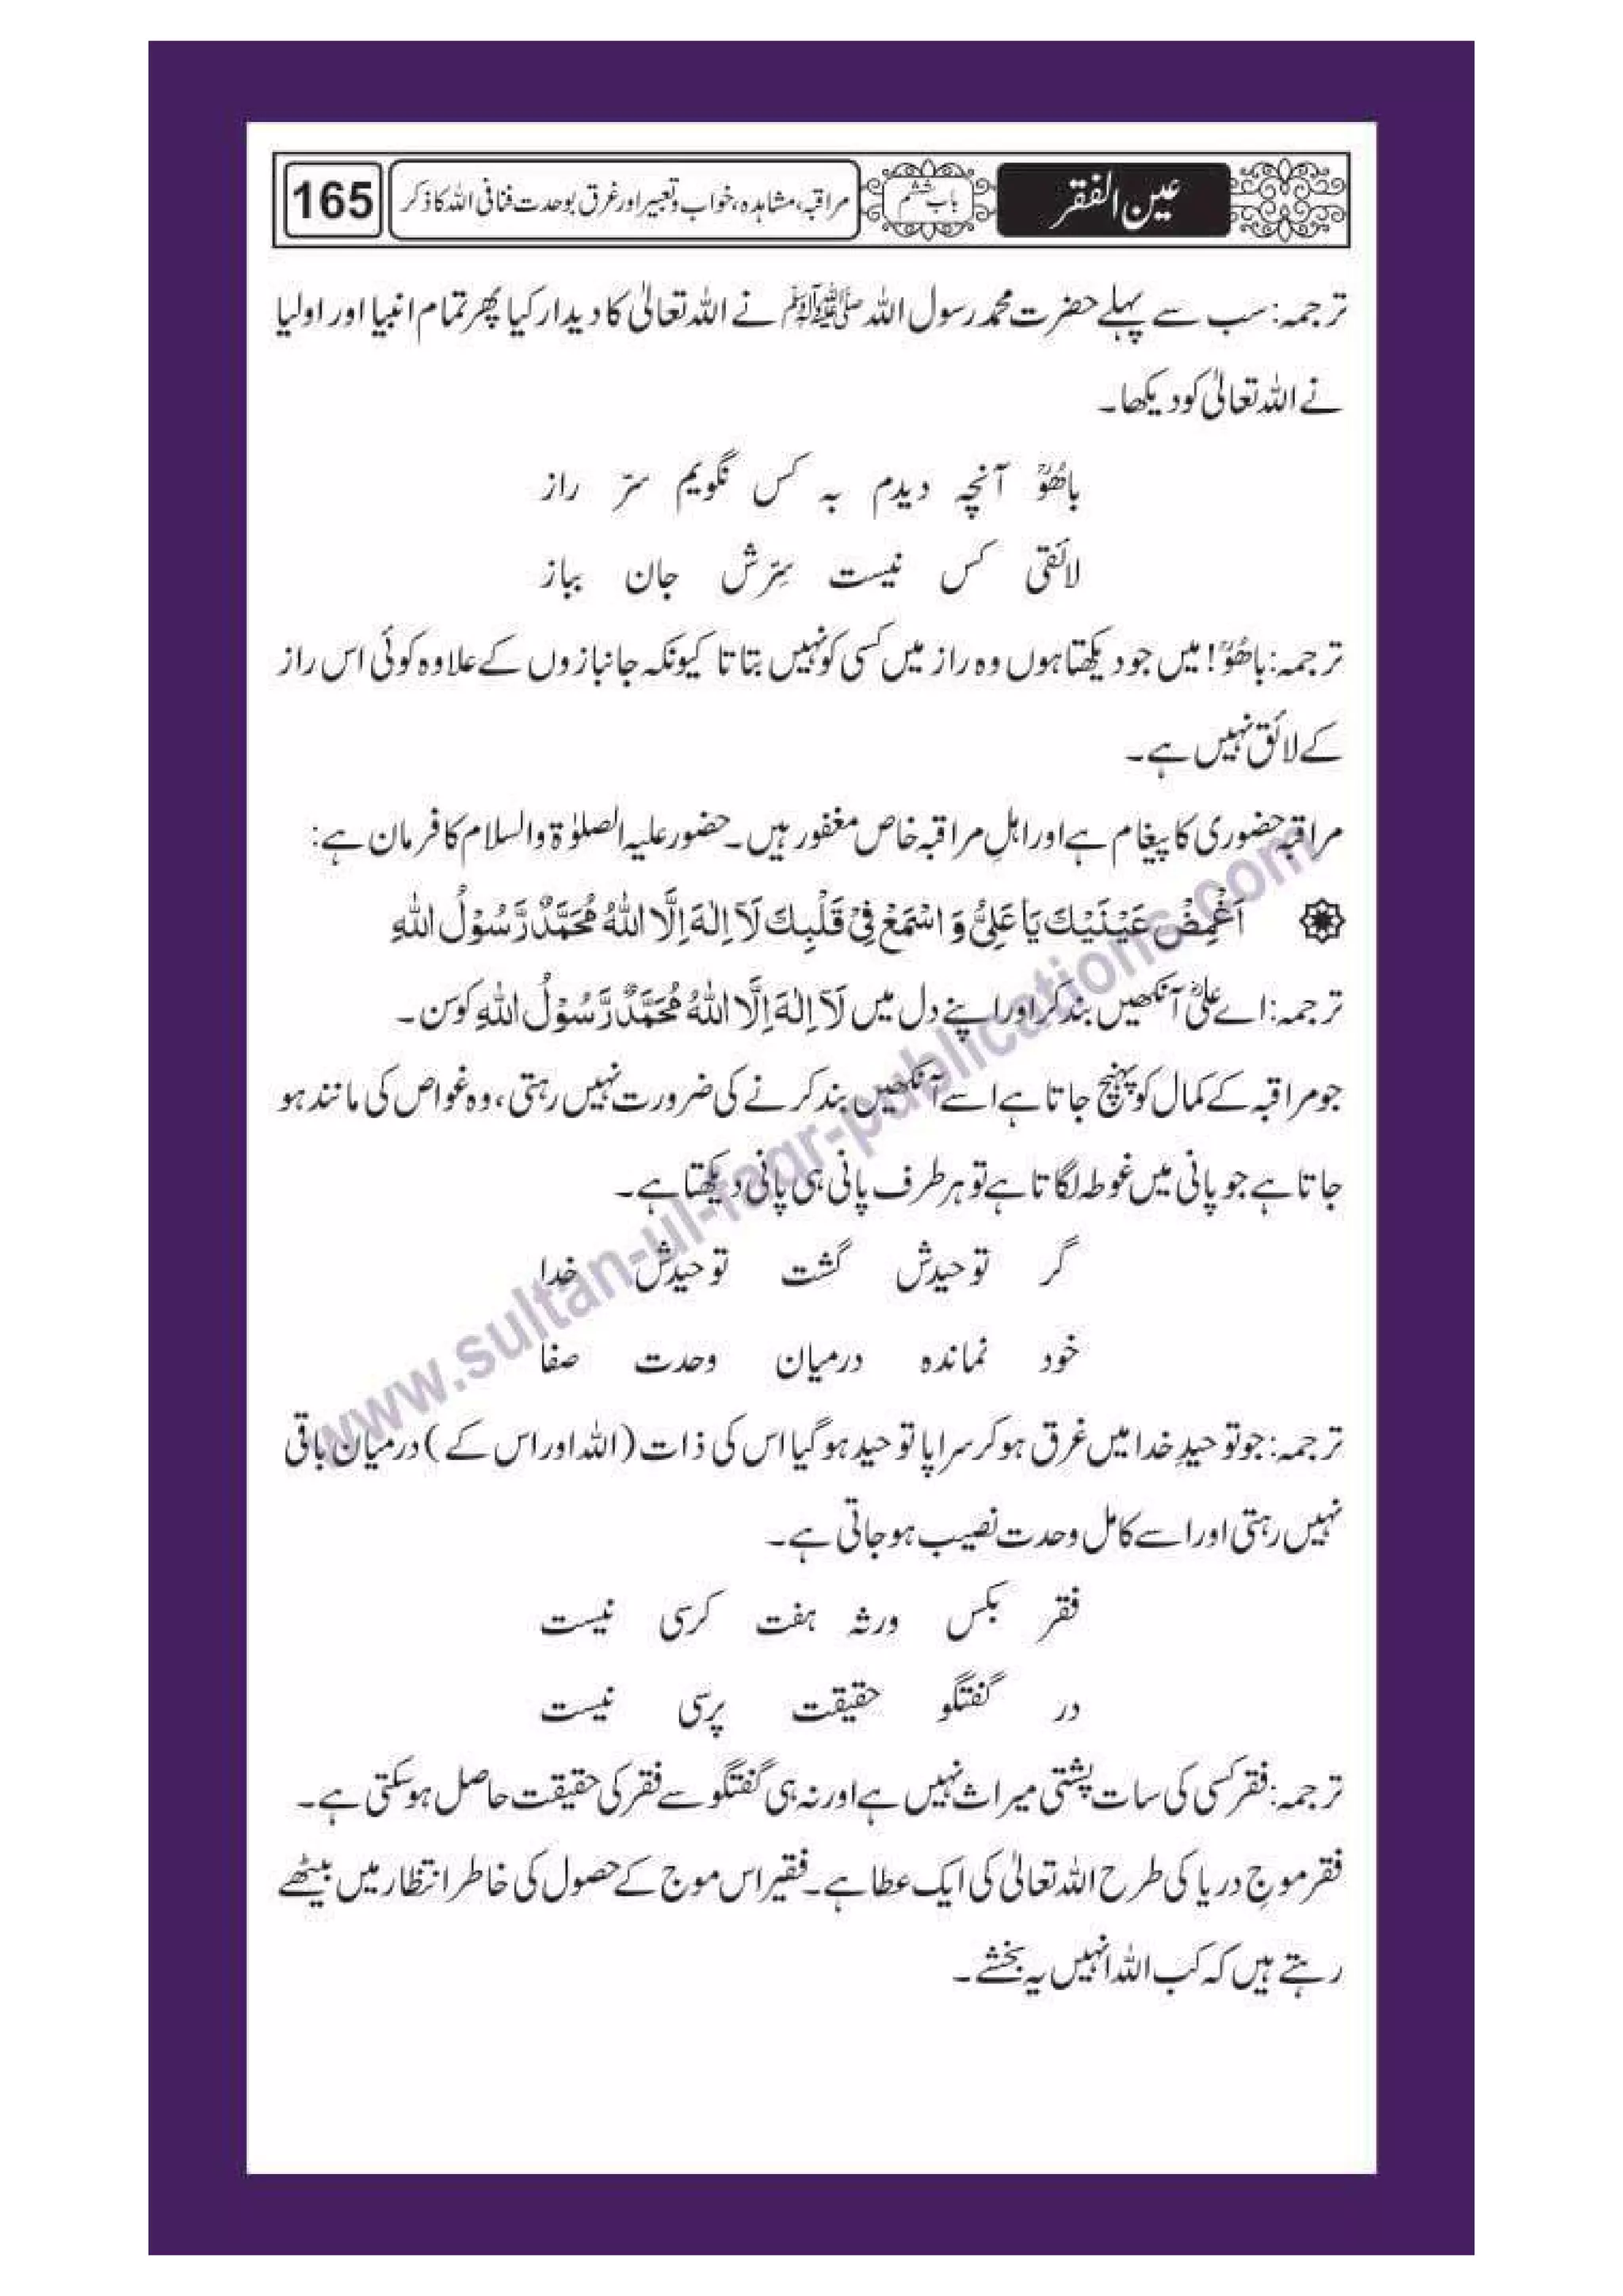 عین الفقر
باب ششم
مراقبہ، مشاہدہ، خواب و تعبیر اور غرق بوحدت فنا فی اللہ کا ذکر
165
ترجمہ: سب سے پہلے حضرت محمد رسول اللہ صلی اللہ علیہ وآلہ وسلم نے اللہ تعالیٰ کا دیدار کیا پھر تمام انبیا اور اولیا
نے اللہ تعالیٰ کو دیکھا۔
باھُوؒ آنچہ دیدم بہ کس نگویم سرّ راز
لائقی کس نیست سِرّش جان بباز
ترجمہ: باھُوؒ! میں جو دیکھتا ہوں وہ راز میں کسی کو نہیں بتاتا کیونکہ جانبازوں کے علاوہ کوئی اس راز
کے لائق نہیں ہے۔
مراقبہ حضوری کا پیغام ہے اور اہلِ مراقبہ خاص مغفور ہیں۔ حضور علیہ الصلوٰۃ والسلام کا فرمان ہے:
اَغْمِضْ عَیْنَیْكَ یَا عَلِیُّ وَ اسْمَعْ فِیْ قَلْبِكَ لَآ اِلٰہَ اِلَّا اللّٰہُ مُحَمَّدٌ رَّسُوْلُ اللّٰہِ
ترجمہ: اے علیؓ آنکھیں بند کر اور اپنے دل میں لَآ اِلٰہَ اِلَّا اللّٰہُ مُحَمَّدٌ رَّسُوْلُ اللّٰہِ کو سن۔
جو مراقبہ کے کمال کو پہنچ جاتا ہے اسے آنکھیں بند کرنے کی ضرورت نہیں رہتی، وہ غواص کی مانند ہو
جاتا ہے جو پانی میں غوطہ لگاتا ہے تو ہر طرف پانی ہی پانی دیکھتا ہے۔
گر توحیدش گشت توحیدش خدا
خود نماندہ درمیان وحدت صفا
ترجمہ: جو توحیدِ خدا میں غرق ہو کر سراپا توحید ہو گیا اس کی ذات (اللہ اور اس کے) درمیان باقی
نہیں رہتی اور اسے کامل وحدت نصیب ہو جاتی ہے۔
فقر بکس ورثہ ہفت کرسی نیست
در گفتگو حقیقت پرسّی نیست
ترجمہ: فقر کسی کی سات پشتی میراث نہیں ہے اور نہ ہی گفتگو سے فقر کی حقیقت حاصل ہو سکتی ہے۔
فقر موجِ دریا کی طرح اللہ تعالیٰ کی ایک عطا ہے۔ فقیر اس موج کے حصول کی خاطر انتظار میں بیٹھے
رہتے ہیں کہ کب اللہ انہیں یہ بخشے۔
www.sultan-ul-faqr-publications.com